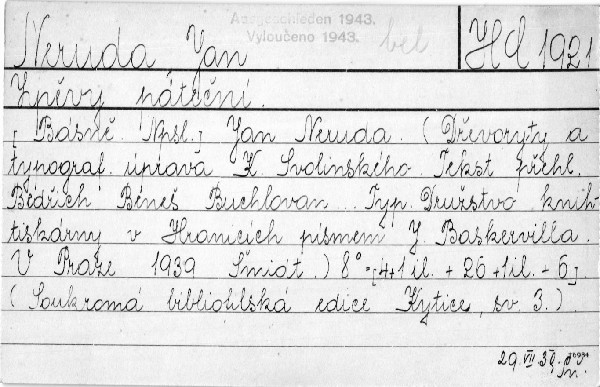 Ausgeschieden 1943.
Vyloučeno 1943.
bel
Neruda Jan
Hd 1921
Zpěvy páteční.
[Básně. Npsl.] Jan Neruda. (Dřevoryty a
typograf. úprava K. Svolinského. Tekst přehl.
Bedřich Beneš Buchlovan. Typ. Družstvo knih-
tiskárny v Hranicích písmem J. Baskervilla.
V Praze 1939 Šmidt.) 8° [4+1 il. + 26 + 1 il. - 6].
(Soukromá bibliofilská edice Kytice, sv. 3.)
29. VII. 39.